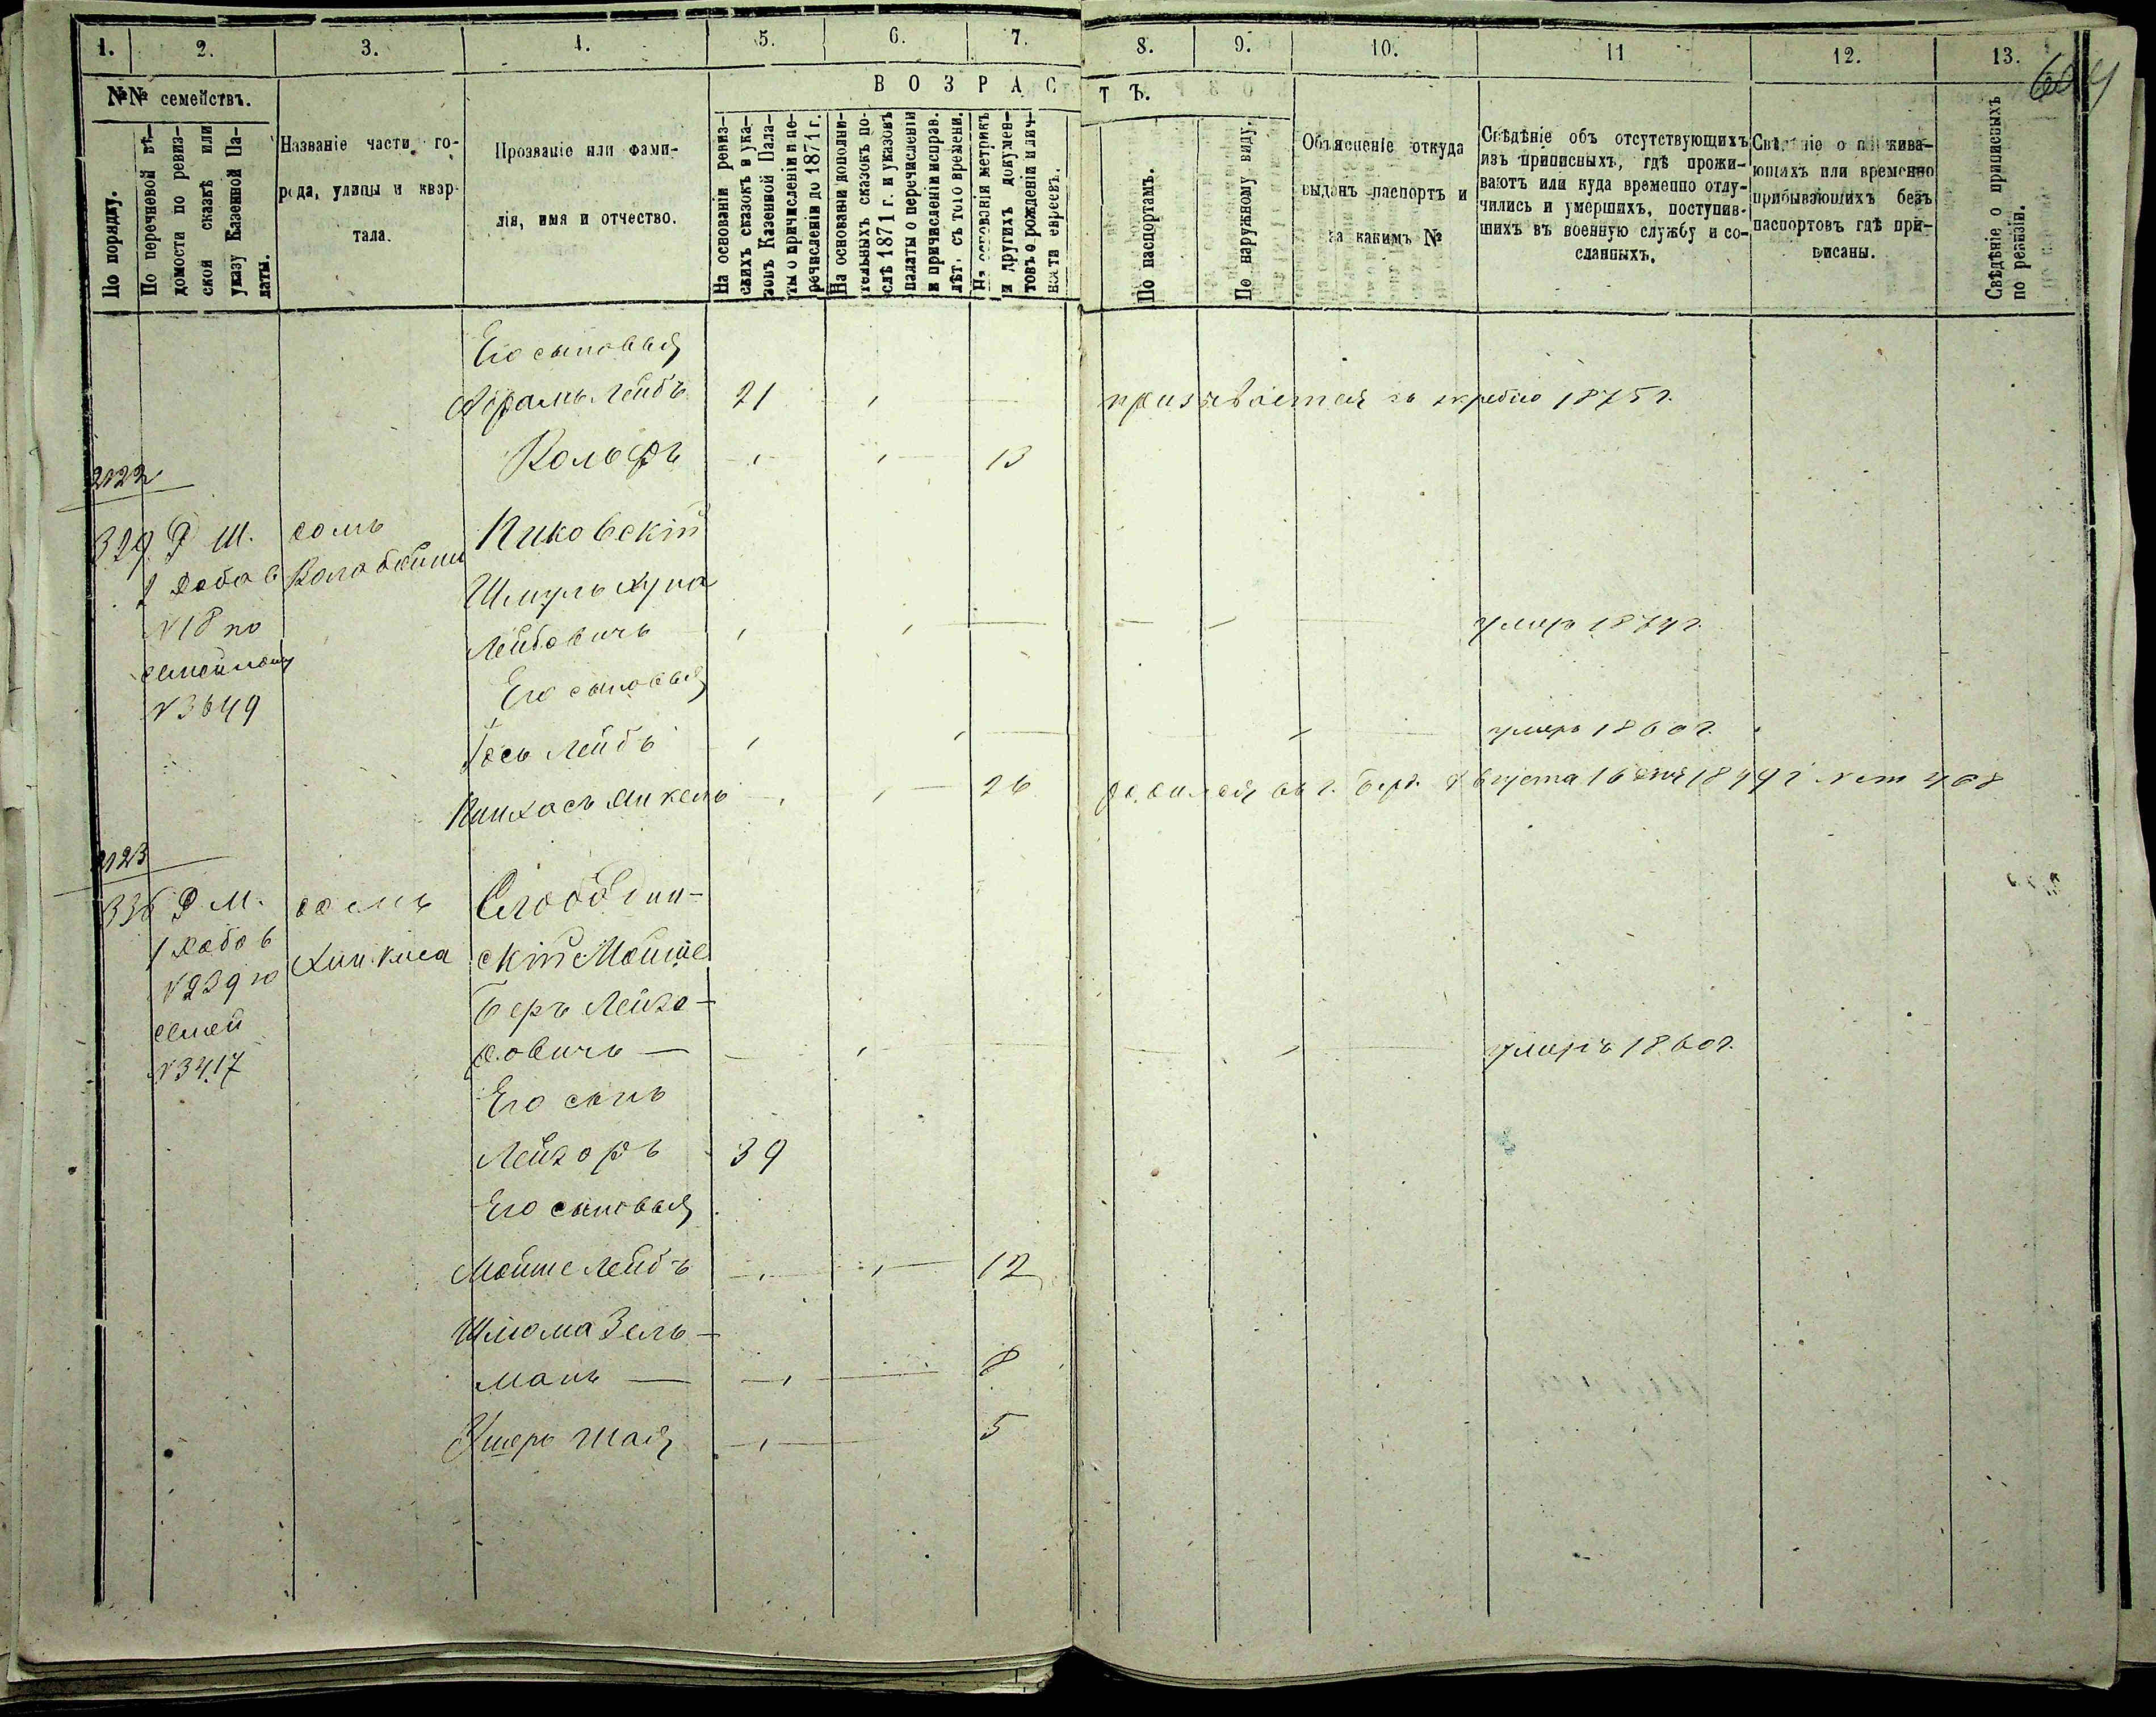 1. 2. 3. 4. 5. 6. 7. 8. 9. 10. 11 12. 13.
604
№№ семействъ.
По порядку.
По перечневой вѣ-
домости по ревиз-
ской сказкѣ или
указу Казенной Па-
латы.
Названіе части го-
рода, улицы и квар-
тала.
Прозваніе или фами-
лія, имя и отчество.
ВОЗРАСТЪ.
На основаніи ревиз-
скихъ сказокъ и ука-
зовъ Казенной Пала-
ты о причисленіи и пе-
речисленіи до 1871 г.
На основаніи дополни-
тельныхъ сказокъ по-
слѣ 1871 г. и указовъ
палаты о перечисленіи
и причисленіи исправ.
лѣт. съ того времени.
На основаніи метрикъ
и другихъ докумен-
товъ о рожденіи и лич-
ности евреевъ.
По паспортамъ.
По наружному виду.
Объясненіе откуда
выданъ паспортъ и
за какимъ №
Свѣдѣніе объ отсутствующихъ
изъ приписныхъ, гдѣ прожи-
ваютъ или куда временно отлу-
чились и умершихъ, поступив-
шихъ въ военную службу и со-
сланныхъ.
Свѣдѣніе о прожива-
ющихъ или временно
прибывающихъ безъ
паспортовъ гдѣ при-
писаны.
Свѣдѣніе о приписныхъ
по ревизіи.
Его сыновья
Абрамъ Лейбъ 21 призывается въ 1875 г.
Вольфъ 13
2122
329 Р Ш. домъ Пиковскій
2 добав Шмуль
№ 18 по Лейбовичъ умеръ 1874 г.
семейному Его сыновья
№ 3649
Іось Лейбъ умеръ 1860 г.
Пинхасъ Янкель 26 родился въ г. Берд. Августа 16 дня 1849 г. 468
2123
336 Р М. домъ Слободин-
1 добав скій Мойше
№ 239 по Беръ Лейзо-
семей ровичъ умеръ 1860 г.
№ 3417 Его сынъ
Лейзоръ 39
Его сыновья
Мойше Лейбъ 12
Шлюма Зель-
манъ 8
Ушеръ Шая 5